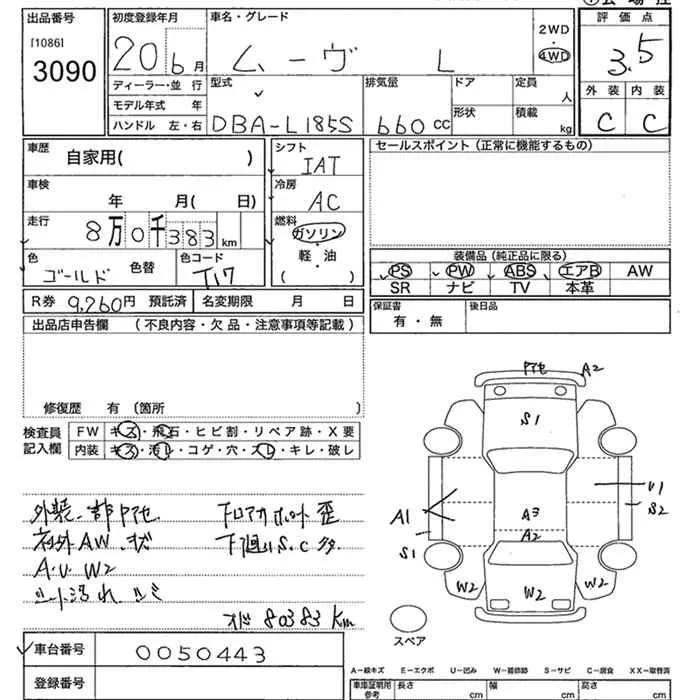 出品番号
[1086]
3090
初度登録年月
20 6月
車名・グレード
ムーヴ L
2WD
・
4WD
評価点
3.5
外装 内装
C C
ディーラー・並 行
モデル年式 年
ハンドル 左・右
型式
DBA-L185S
排気量
660 CC
ドア
形状
定員
人
積載
kg
車歴
自家用( )
車検
年 月( 日)
走行
8万0千383km
色
ゴールド
色替
色コード
T17
シフト
IAT
冷房
AC
燃料
ガソリン
・
軽・油
( )
セールスポイント (正常に機能するもの)
装備品 (純正品に限る)
PS PW ABS エアB AW
SR ナビ TV 本革
R券 9,260円 預託済 名変期限 月 日
保証書
有・無
後日品
出品店申告欄 (不良内容・欠品・注意事項等記載)
修復歴 有 (箇所 )
検査員
記入欄
FW キズ・飛石・ヒビ割・リペア跡・X要
内装 キズ・汚レ・コゲ・穴・スレ・キレ・破レ
外装一部Pセ
社外AW 状
A.U W2
シート汚れ
下回りS.C多
80383 Km
車台番号 0050443
登録番号
Pセ A2
S1
U1
S2
A1
S1
A3
A2
W2 W2 W2
スペア
A－線キズ E－エクボ U－凹み W－補修跡 S－サビ C－腐食 XX－取替済
車庫証明用
参考
長さ cm 幅 cm 高さ cm